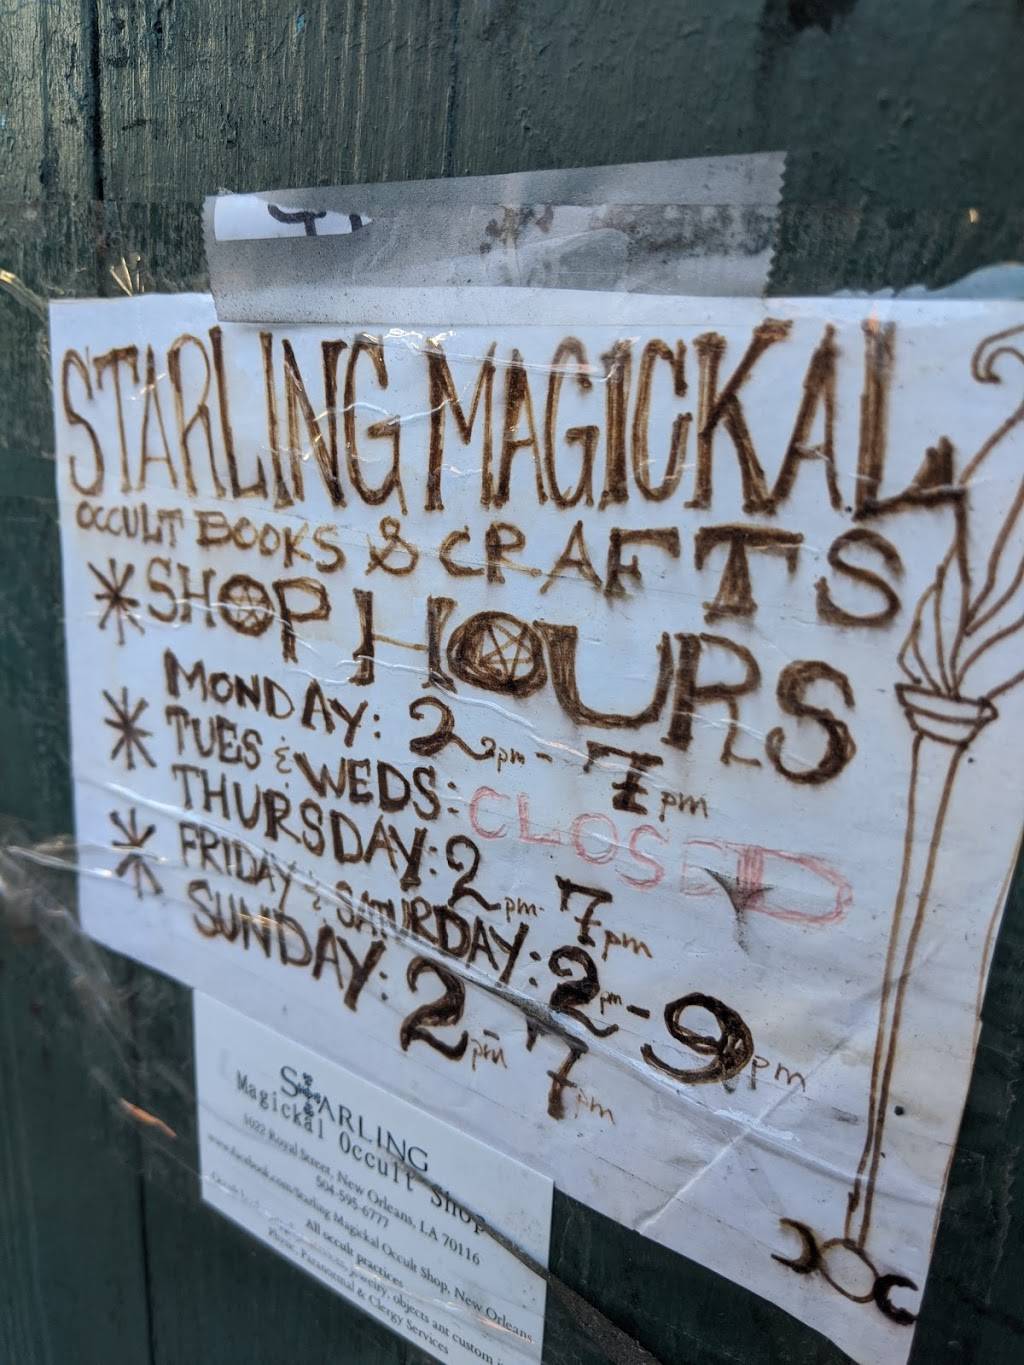 STARLING MAGICKAL
OCCULT BOOKS & CRAFTS
SHOP HOURS
MONDAY: 2pm - 7pm
TUES & WEDS: CLOSED
THURSDAY: 2pm - 7pm
FRIDAY & SATURDAY: 2pm - 9pm
SUNDAY: 2pm - 7pm
STARLING
Magickal Occult Shop
1022 Royal Street, New Orleans, LA 70116
504-595-6777
www.facebook.com/Starling Magickal Occult Shop, New Orleans
All occult practices
jewelry, objects ant custom
Paranormal & Clergy Services